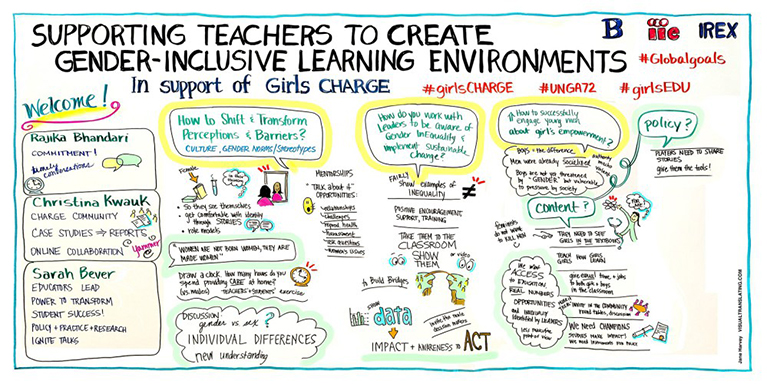 SUPPORTING TEACHERS TO CREATE
GENDER-INCLUSIVE LEARNING ENVIRONMENTS
In support of Girls CHARGE
B
iie
IREX
#Globalgoals
#girlsCHARGE
#UNGA72
#girlsEDU
Welcome!
Rajika Bhandari
COMMITMENT!
timely conversations
Christina Kwauk
CHARGE COMMUNITY
CASE STUDIES → REPORTS
ONLINE COLLABORATION
Yammer
Sarah Bever
EDUCATORS LEAD
POWER TO TRANSFORM
STUDENT SUCCESS!
POLICY + PRACTICE + RESEARCH
IGNITE TALKS
How to Shift & Transform
Perceptions & Barriers?
CULTURE, GENDER NORMS/Stereotypes
Female
• So they see themselves
• get comfortable with identity
through STORIES
• role models
"WOMEN ARE NOT BORN WOMEN, THEY ARE
MADE WOMEN"
Draw a clock. How many hours do you
spend providing CARE at home?
(vs males) TEACHERS + STUDENTS exercise
DISCUSSION
gender vs sex?
INDIVIDUAL DIFFERENCES
new understanding
MENTORSHIPS
• TALK ABOUT
OPPORTUNITIES:
relationships
challenges
harassment
ask questions
women's issues
How do you work with
Leaders to be Aware of
Gender InEquality &
implement Sustainable
Change?
FAIRLY
Show examples of
INEQUALITY
POSITIVE ENCOURAGEMENT,
SUPPORT, TRAINING
TAKE THEM TO THE
CLASSROOM
SHOW
THEM
or video
to Build Bridges
SHOW
data
invite the male
decision makers
IMPACT + AWARENESS to ACT
How to successfully
engage young men
about girl's empowerment?
Boys + the difference.
Men were already socialized
Boys are not yet threatened
by "GENDER" but vulnerable
to pressures by society
policy?
PLAYERS NEED TO SHARE
STORIES
give them the tools!
content?
feminists
do not want
to KILL MEN
THEY NEED TO SEE
GIRLS IN THE TEXTBOOKS
TEACH HOW GIRLS
LEARN
give equal time + jobs
to both girls + boys
in the classroom
We want
ACCESS
TO EDUCATION
REAL NUMBERS
OPPORTUNITIES
and inequality
identified by LEADERS
INVITE IN THE COMMUNITY
round tables, discussion
We NEED CHAMPIONS
STUDENTS MAKE IMPACT!
Jane Harvey
VISUALTRANSLATING.COM